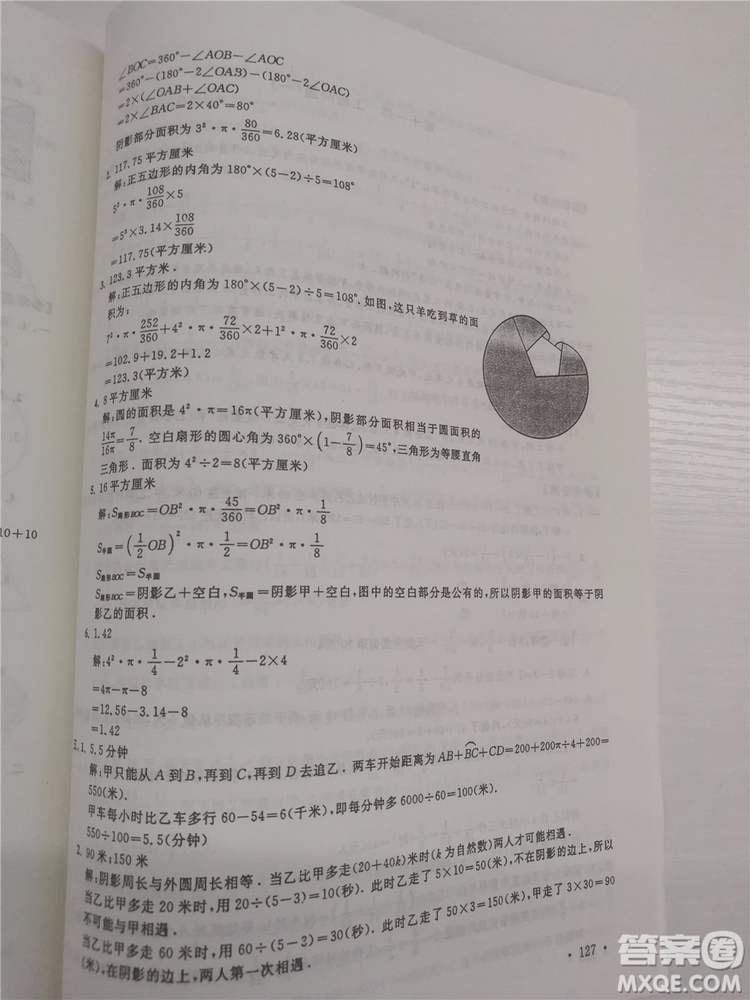 ∠BOC=360°-∠AOB-∠AOC
=360°-(180°-2∠OAB)-(180°-2∠OAC)
=2×(∠OAB+∠OAC)
=2×∠BAC=2×40°=80°
阴影部分面积为 3²·π·80/360=6.28(平方厘米)
2. 117.75 平方厘米
解:正五边形的内角为 180°×(5-2)÷5=108°
5²·π·108/360×5
=5³×3.14×108/360
=117.75(平方厘米)
3. 123.3 平方厘米.
解:正五边形的内角为 180°×(5-2)÷5=108°. 如图,这只羊吃到草的面
积为:
7²·π·252/360+4²·π·72/360×2+1²·π·72/360×2
=102.9+19.2+1.2
=123.3(平方厘米)
4. 8平方厘米
解:圆的面积是 4²·π=16π(平方厘米),阴影部分面积相当于圆面积的
14π/16π=7/8. 空白扇形的圆心角为 360°×(1-7/8)=45°,三角形为等腰直角
三角形. 面积为 4²÷2=8(平方厘米)
5. 16 平方厘米
解:S扇形BOC=OB²·π·45/360=OB²·π·1/8
10+10
S半圆=(1/2OB)²·π·1/2=OB²·π·1/8
S扇形BOC=S半圆
S扇形BOC=阴影乙+空白,S半圆=阴影甲+空白,图中的空白部分是公有的,所以阴影甲的面积等于阴
影乙的面积.
6. 1.42
解:4²·π·1/4-2²·π·1/4-2×4
=4π-π-8
=12.56-3.14-8
=1.42
1. 5.5分钟
解:甲只能从 A 到 B,再到 C,再到 D 去追乙. 两车开始距离为 AB+BC+CD=200+200π÷4+200=
550(米).
甲车每小时比乙车多行 60-54=6(千米),即每分钟多 6000÷60=100(米).
550÷100=5.5(分钟)
2. 90 米;150 米
解:阴影周长与外圆周长相等. 当乙比甲多走(20+40k)米时(k 为自然数)两人才可能相遇.
当乙比甲多走 20 米时,用 20÷(5-3)=10(秒). 此时乙走了 5×10=50(米),不在阴影的边上,所以
不可能与甲相遇.
当乙比甲多走 60 米时,用 60÷(5-3)=30(秒). 此时乙走了 5×30=150(米),甲走了 3×30=90
(米),在阴影的边上,两人第一次相遇.
· 127 ·
答案圈
MXQE.COM